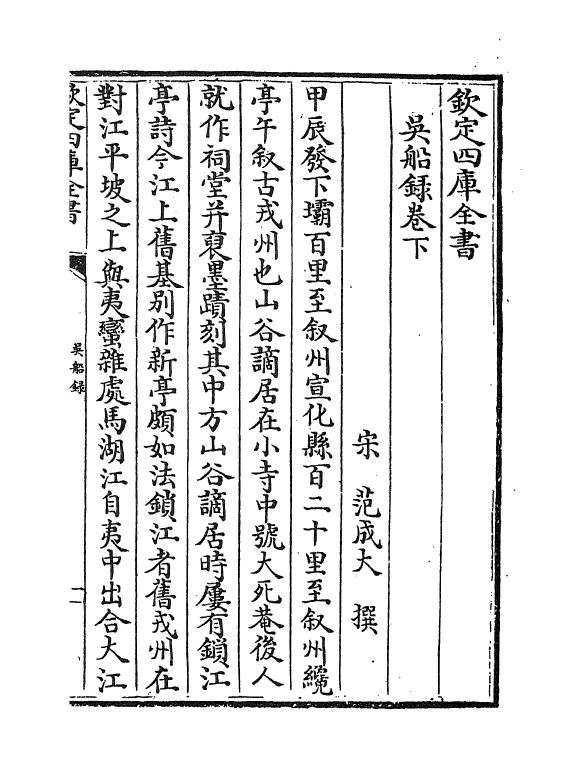 欽定四庫全書
吳船録卷下
宋 范成大 撰
甲辰發下壩百里至叙州宣化縣百二十里至叙州纜
亭午叙古戎州也山谷謫居在小寺中號大死菴後人
就作祠堂并裒墨蹟刻其中方山谷謫居時屢有鎖江
亭詩今江上舊基别作新亭頗如法鎖江者舊戎州在
對江平坡之上與夷蠻雜處馬湖江自夷中出合大江
欽定四庫全書
吳船録
一